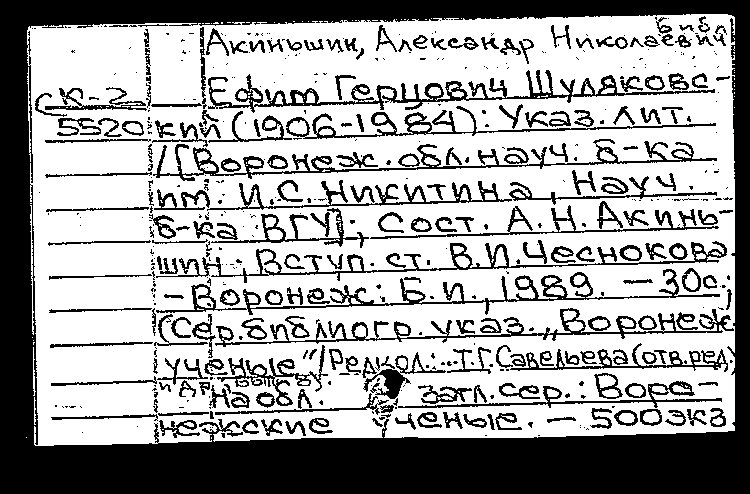 Библ
Акиньшин, Александр Николаевич
СК-2 Ефим Герцович Шуляковс-
5520 кий (1906-1984): Указ. лит.
/[Воронеж. обл. науч. б-ка
им. И.С. Никитина, Науч.
б-ка ВГУ]; Сост. А.Н. Акинь-
шин; Вступ. ст. В.И. Чеснокова.
-Воронеж: Б.и., 1989. - 30с.;
(Сер. библиогр. указ. „Воронеж
ученые"/Редкол.:...Т.Г. Савельева (отв. ред.)
и др.
На обл. загл. сер.: Воро-
нежские ченые. - 500экз.